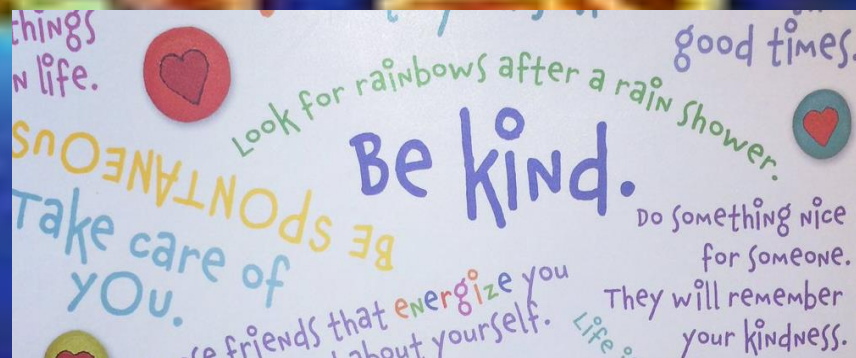 things
n life.
good times.
Look for rainbows after a rain shower.
Be kind.
BE spontaneous
Take care of
you.
Do something nice
for someone.
They will remember
your kindness.
friends that energize you
about yourself.
Life